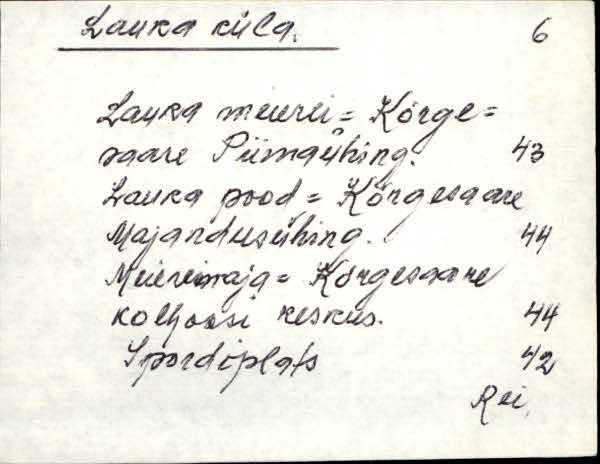 Lauka küla. 6
Lauka meierei = Kõrge=
saare Piimaühing. 43
Lauka pood = Kõrgesaare
Majandusühing. 44
Meiereimaja = Kõrgesaare
kolhoosi keskus. 44
Spordiplats 42
Rei.